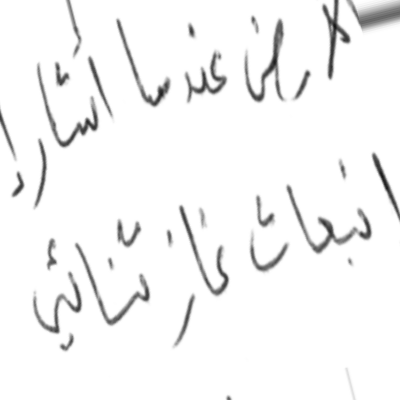 لأرض عندما أشار
انبعاث غاز ثنائي